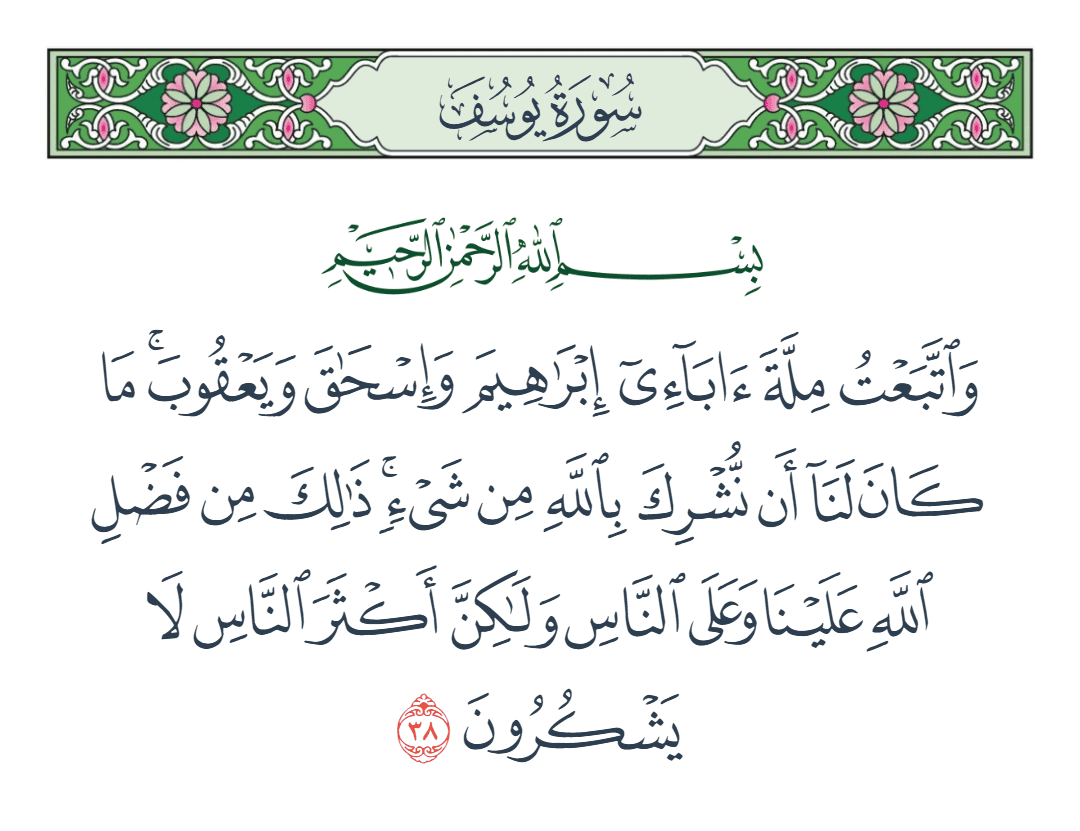 سُورَةُ يُوسُفَ
بِسْمِ ٱللَّهِ ٱلرَّحْمَٰنِ ٱلرَّحِيمِ
وَٱتَّبَعْتُ مِلَّةَ ءَابَآءِىٓ إِبْرَٰهِيمَ وَإِسْحَٰقَ وَيَعْقُوبَ ۚ مَا
كَانَ لَنَآ أَن نُّشْرِكَ بِٱللَّهِ مِن شَىْءٍ ۚ ذَٰلِكَ مِن فَضْلِ
ٱللَّهِ عَلَيْنَا وَعَلَى ٱلنَّاسِ وَلَٰكِنَّ أَكْثَرَ ٱلنَّاسِ لَا
يَشْكُرُونَ ٣٨